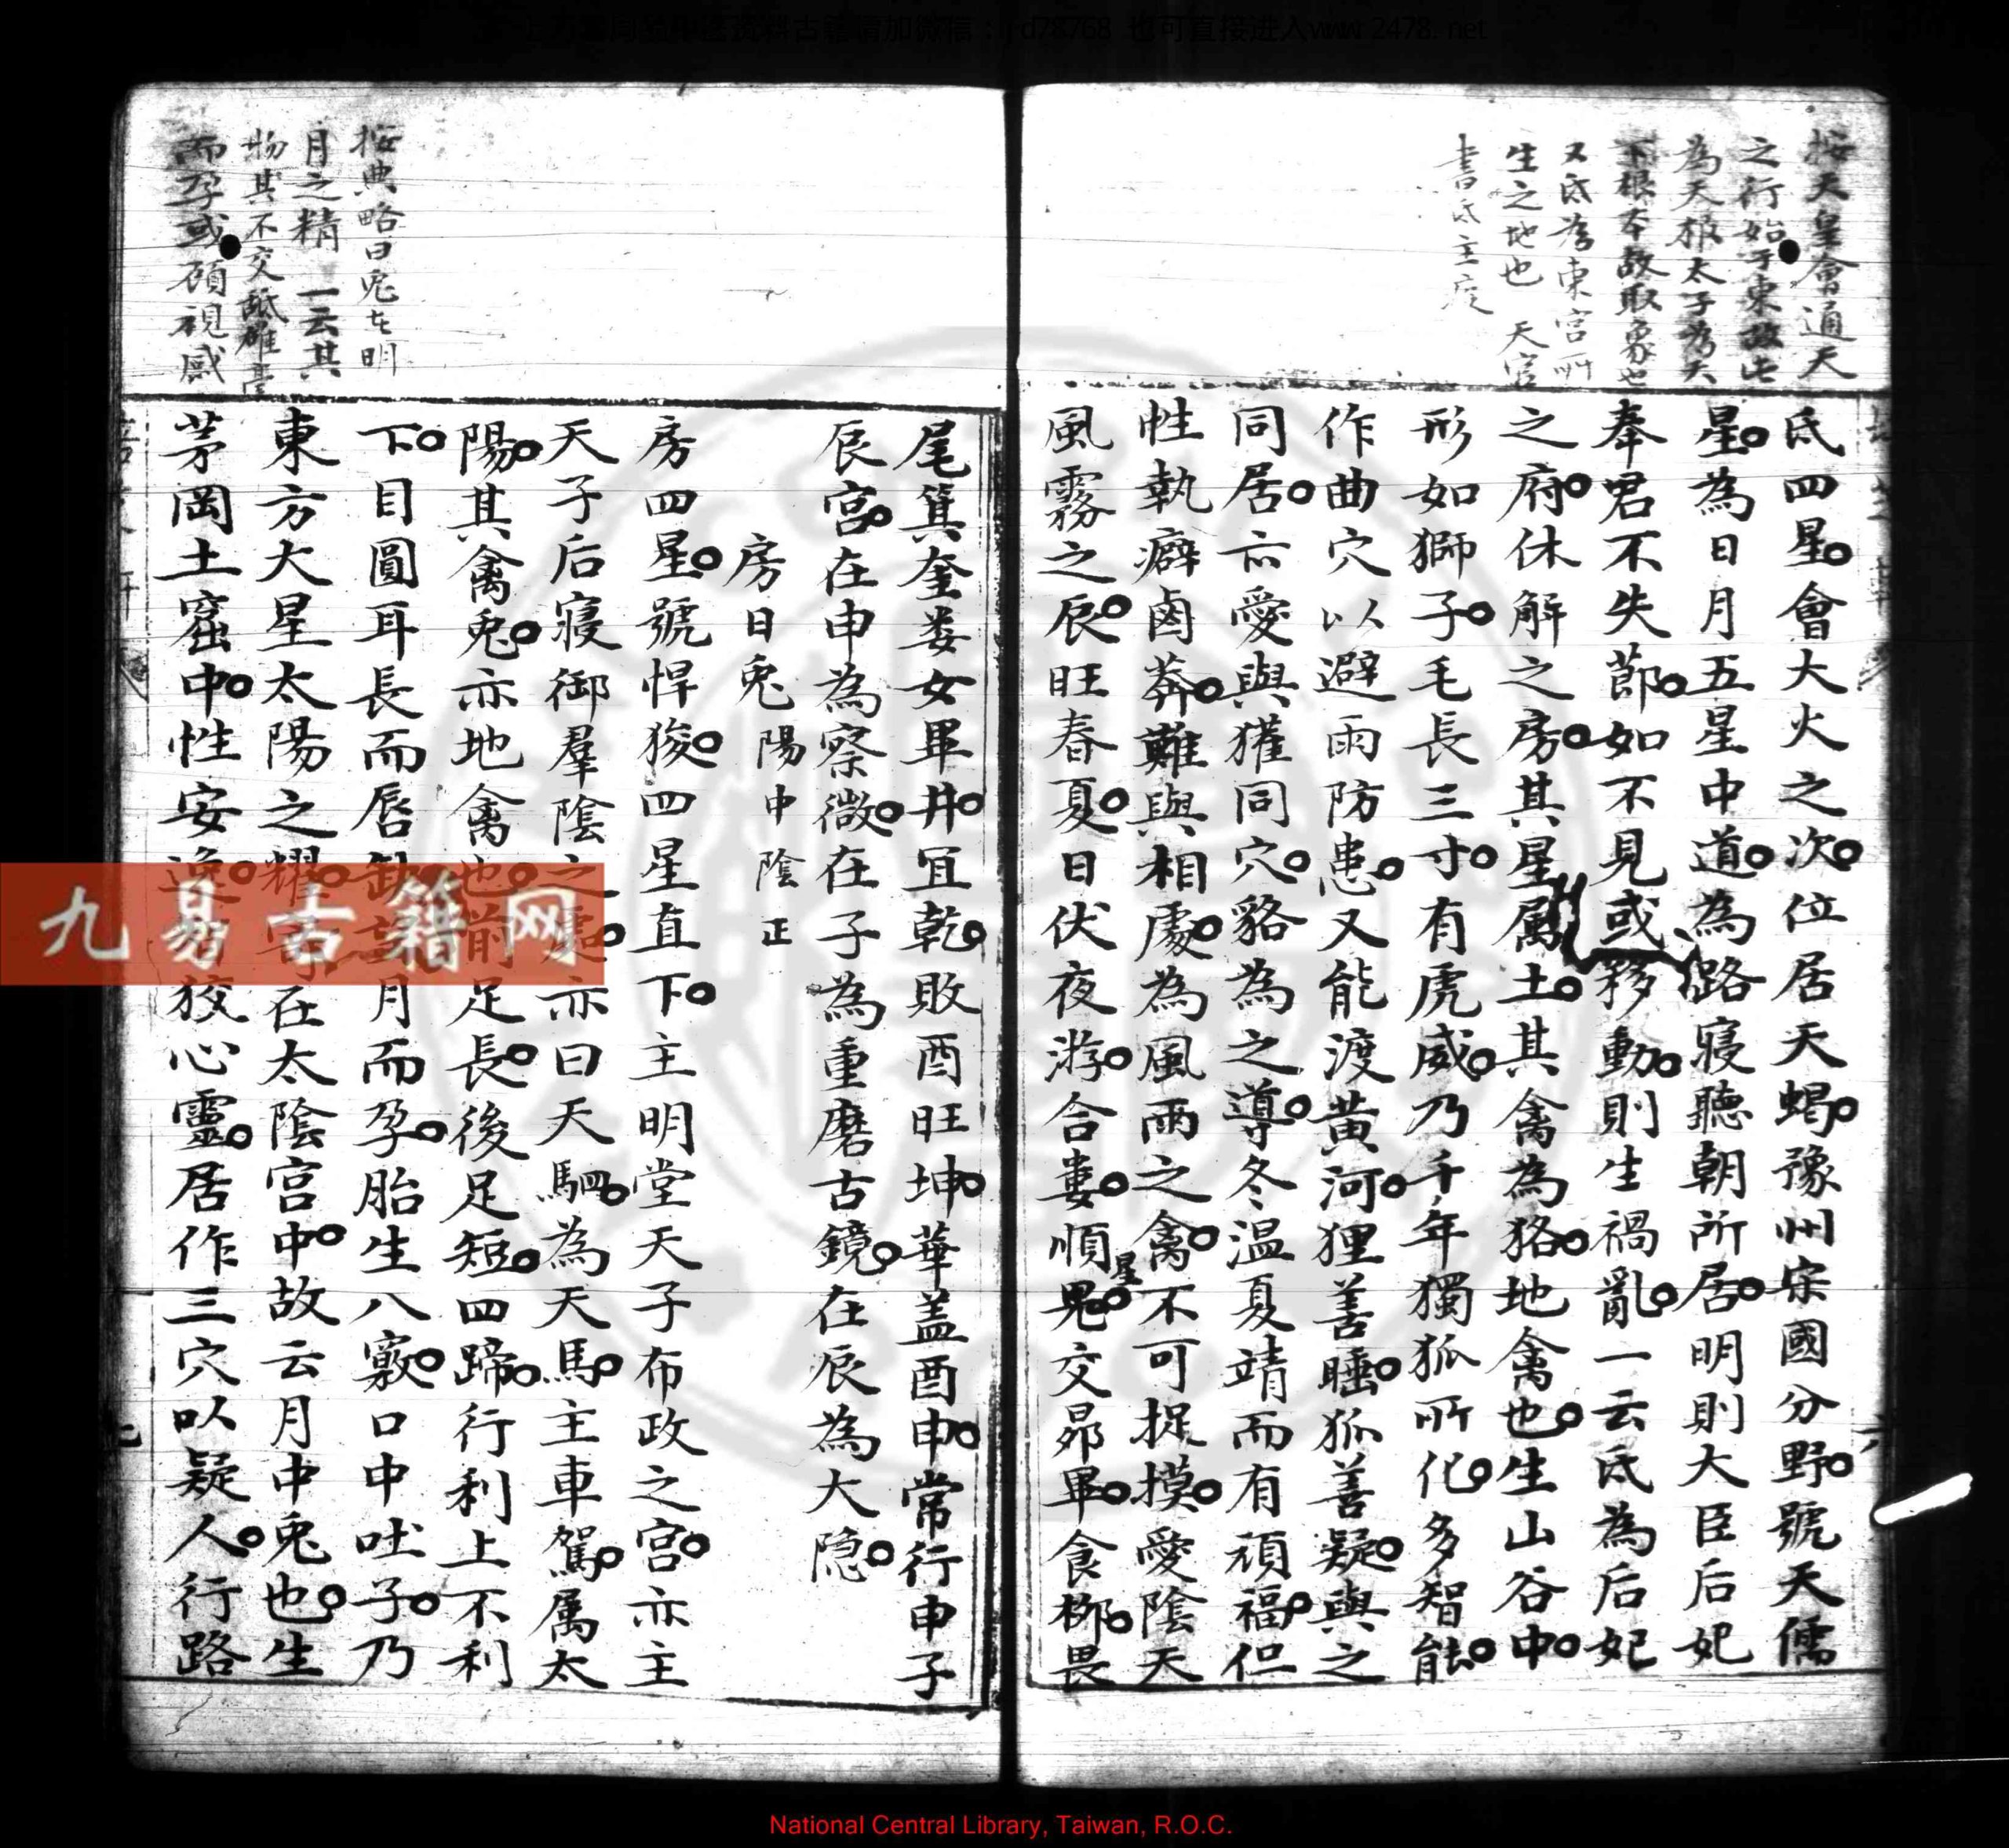 按天皇會通天
之行始于東故氐
為天根太子為天
下根本故取象也
又氐為東宮所
生之地也 天官
書氐主疫
氐四星會大火之次位居天蝎豫州宋國分野號天儒
星為日月五星中道為路寢聽朝所居明則大臣后妃
奉君不失節如不見或移動則生禍亂一云氐為后妃
之府休解之房其星属土其禽為狢地禽也生山谷中
形如獅子毛長三寸有虎威乃千年獨狐所化多智能
作曲穴以避雨防患又能渡黃河狸善睡狐善疑與之
同居亦愛與獾同穴貉為之導冬温夏靖而有頑福但
性執癖鹵莽難與相處為風雨之禽不可捉摸愛陰天
風霧之辰旺春夏日伏夜游合婁順鬼星交昴畢食柳畏
尾箕奎婁女畢井宜乾敗酉旺坤華盖酉申常行申子
辰宮在申為察微在子為重磨古鏡在辰為大隐
房日兎 陽中陰正
房四星號悍狻四星直下主明堂天子布政之宮亦主
天子后寝御羣陰之處亦曰天駟為天馬主車駕属太
陽其禽兎亦地禽也前足長後足短四蹄行利上不利
下目圓耳長而唇缺望月而孕胎生八竅口中吐子乃
東方大星太陽之耀寄在太陰宫中故云月中兎也生
茅岡土窟中性安逸猾狡心靈居作三穴以疑人行路
按典略曰兎者明
月之精 一云其
物其不交舐雄毫
而孕或顧視感
九易古籍网
National Central Library, Taiwan, R.O.C.